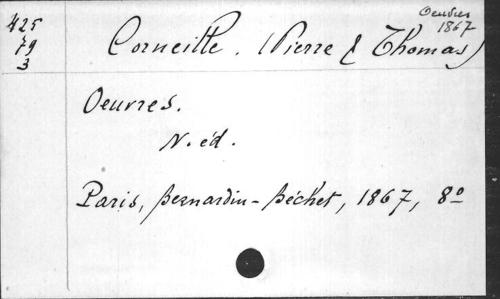 Oeuvres
1867
425
79
3
Corneille. (Pierre & Thomas)
Oeuvres.
N. éd.
Paris, Bernardin-Béchet, 1867, 8º